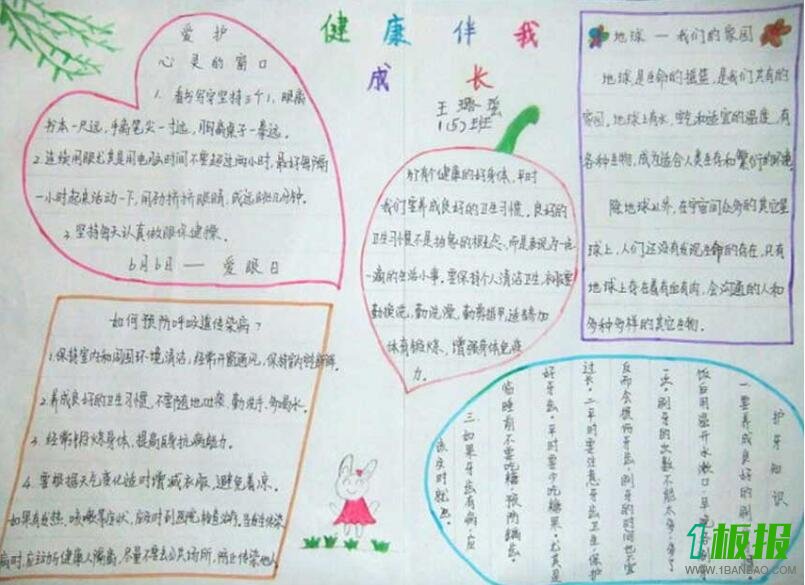 健康伴我
成长
王
1(5)班
爱护
心灵的窗口
1. 看书写字坚持三个1,眼离
书本一尺远,手离笔尖一寸远,胸离桌子一拳远。
2.连续用眼尤其是用电脑时间不要超过两小时,最好每隔
一小时起来活动一下,用劲挤挤眼睛,或远眺几分钟。
3.坚持每天认真做眼保健操。
6月6日——爱眼日
地球—我们的家园
地球是生命的摇篮,是我们共有的
家园。地球上有水,空气和适宜的温度,有
各种生物,成为适合人类生存和繁衍的环境。
除地球以外,在宇宙间众多的其它星
球上,人们还没有发现生命的存在,只有
地球上存在着有血有肉,会沟通的人和
多种多样的其它生物。
为了有个健康的好身体,平时
我们要养成良好的卫生习惯。良好的
卫生习惯不是抽象的概念,而是表现为一点
一滴的生活小事。要保持个人清洁卫生,
勤换洗,勤洗澡,勤剪指甲,适当参加
体育锻炼,增强身体免疫
力。
如何预防呼吸道传染病?
1.保持室内和周围环境清洁,经常开窗通风,保持室内空气新鲜。
2.养成良好的卫生习惯,不要随地吐痰,勤洗手,多喝水。
3.经常锻炼身体,提高自身抗病能力。
4.要根据天气变化适时增减衣服,避免着凉。
如果有发热、咳嗽等症状,应及时到医院检查治疗。当发生传染
病时,应主动与健康人隔离,尽量不要去公共场所,防止传染他人
护牙知识
一.要养成良好的刷
饭后用温开水漱口,早晚各刷
一次,刷牙的次数不能太多,多了
反而会损伤牙齿,刷牙的时间也不宜
过长。二.平时要注意牙齿卫生,保护
好牙齿。平时要少吃糖果。尤其是
临睡前不要吃糖,预防龋齿。
三.如果牙齿有病,应
该及时就医。
1板报
WWW.1BANBAO.COM